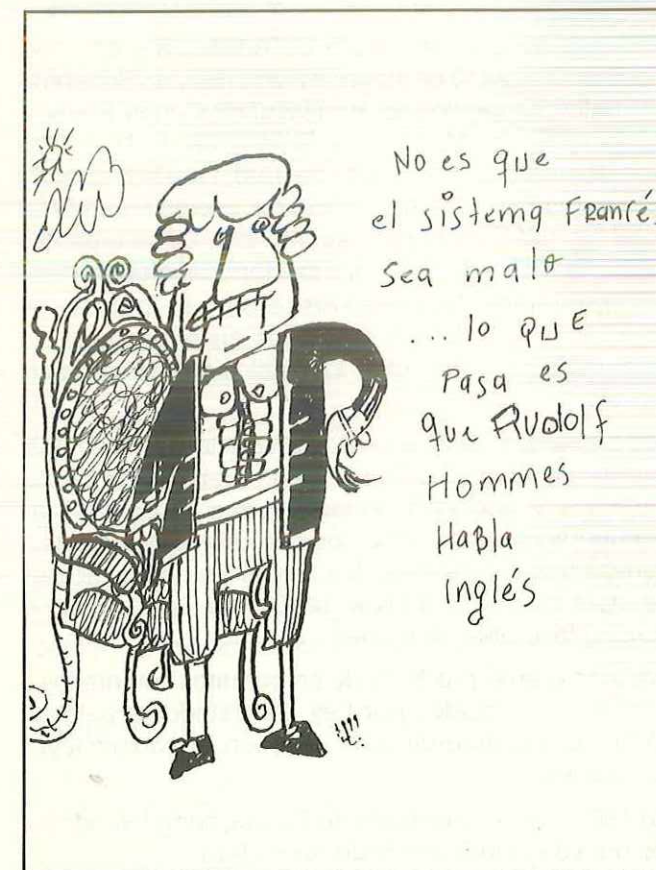 No es que
el sistema Francés
sea malo
...lo que
Pasa es
que Rudolf
Hommes
Habla
Inglés